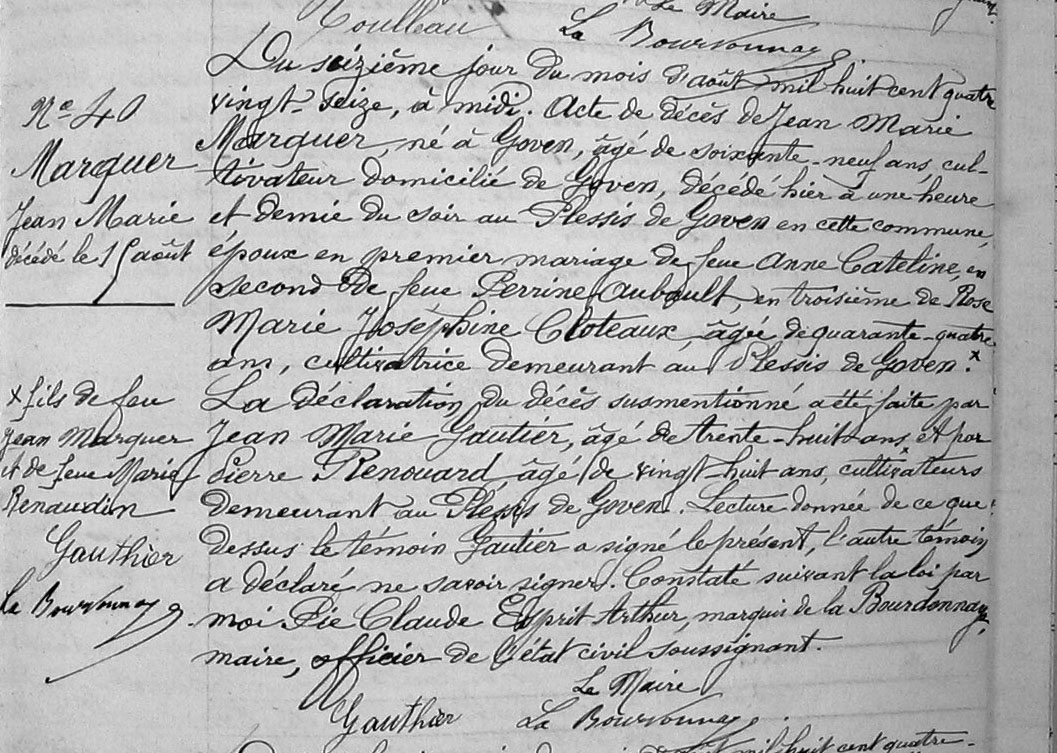 Le Maire
Roulleau
La Bourdonnaye
Nº 40
Marquer
Jean Marie
décédé le 15 août
Du seizième jour du mois d'août mil huit cent quatre
vingt-seize, à midi. Acte de décès de Jean Marie
Marquer, né à Goven, âgé de soixante-neuf ans, cul-
tivateur domicilié de Goven, décédé hier à une heure
et demie du soir au Plessis de Goven en cette commune,
époux en premier mariage de feue Anne Cateline, en
second de feue Perrine Aubault, en troisième de Rose
Marie Joséphine Cloteaux, âgée de quarante-quatre
ans, cultivatrice demeurant au Plessis de Goven. x
La déclaration du décès susmentionné a été faite par
Jean Marie Gautier, âgé de trente-huit ans, et par
Pierre Renouard, âgé de vingt-huit ans, cultivateurs
demeurant au Plessis de Goven. Lecture donnée de ce que
dessus le témoin Gautier a signé le présent, l'autre témoin
a déclaré ne savoir signer. Constaté suivant la loi par
moi Pie Claude Esprit Arthur, marquis de la Bourdonnaye,
maire, officier de l'état civil soussignant.
x fils de feu
Jean Marquer
et de feue Marie
Renaudin
Gauthier
La Bourdonnaye
Le Maire
Gauthier La Bourdonnaye
août mil huit cent quatre-